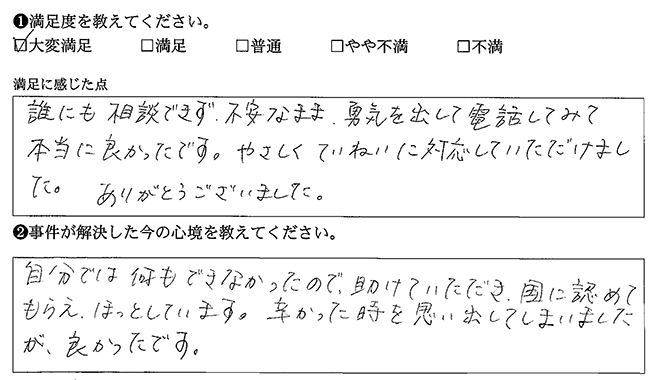 ❶満足度を教えてください。
☑大変満足 □満足 □普通 □やや不満 □不満
満足に感じた点
誰にも相談できず、不安なまま、勇気を出して電話してみて
本当に良かったです。やさしくていねいに対応していただけまし
た。ありがとうございました。
❷事件が解決した今の心境を教えてください。
自分では何もできなかったので、助けていただき、国に認めて
もらえ、ほっとしています。辛かった時を思い出してしまいました
が、良かったです。